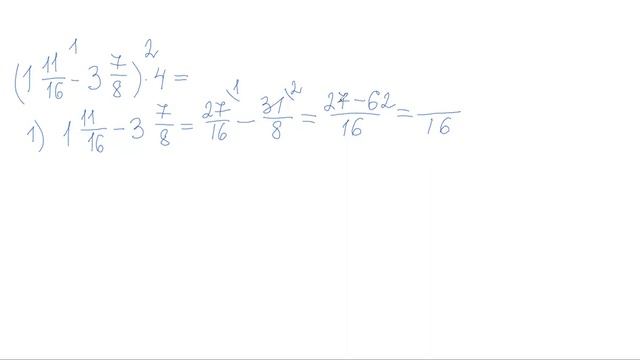 (1 11/16 - 3 7/8) · 4 =
1 2
1) 1 11/16 - 3 7/8 = 27/16 \1 - 31/8 \2 = 27-62/16 = /16